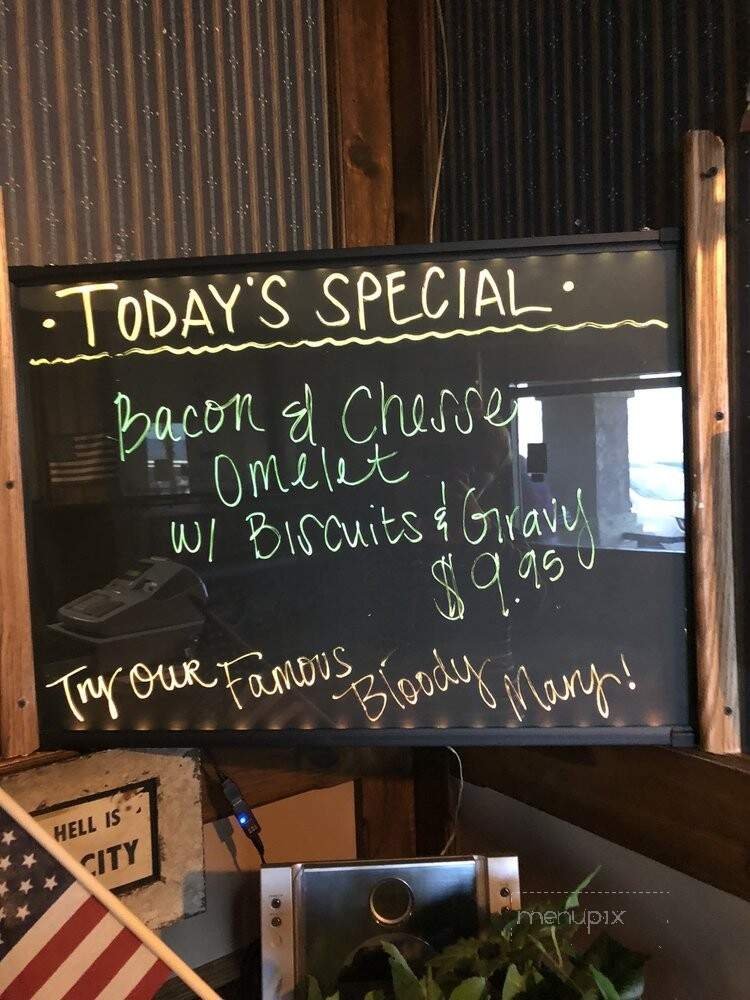 · TODAY'S SPECIAL ·
Bacon & Chesse
Omelet
w/ Biscuits & Gravy
$9.95
Try Our Famous Bloody Mary!
HELL IS
CITY
menupix